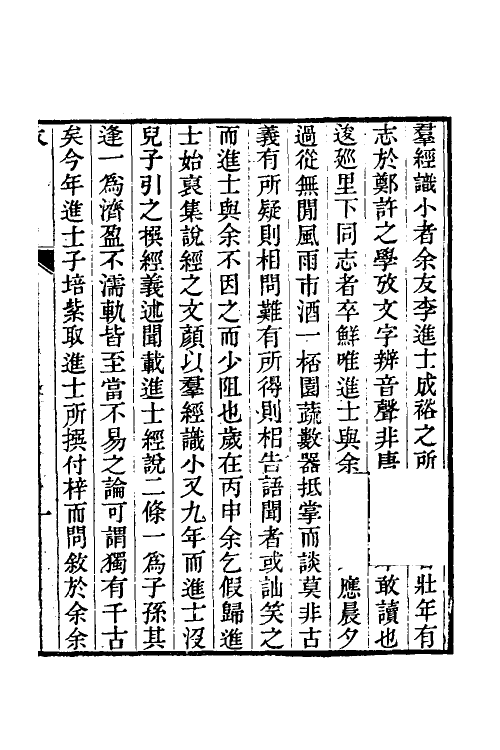 羣經識小者余友李進士成裕之所壯年有
志於鄭許之學攷文字辨音聲非唐敢讀也
逡巡里下同志者卒鮮唯進士與余應晨夕
過從無閒風雨市酒一桮園蔬數器抵掌而談莫非古
義有所疑則相問難有所得則相告語聞者或訕笑之
而進士與余不因之而少阻也歲在丙申余乞假歸進
士始裒集說經之文顏以羣經識小又九年而進士沒
兒子引之撰經義述聞載進士經說二條一爲子孫其
逢一爲濟盈不濡軌皆至當不易之論可謂獨有千古
矣今年進士子培紫取進士所撰付梓而問敘於余余